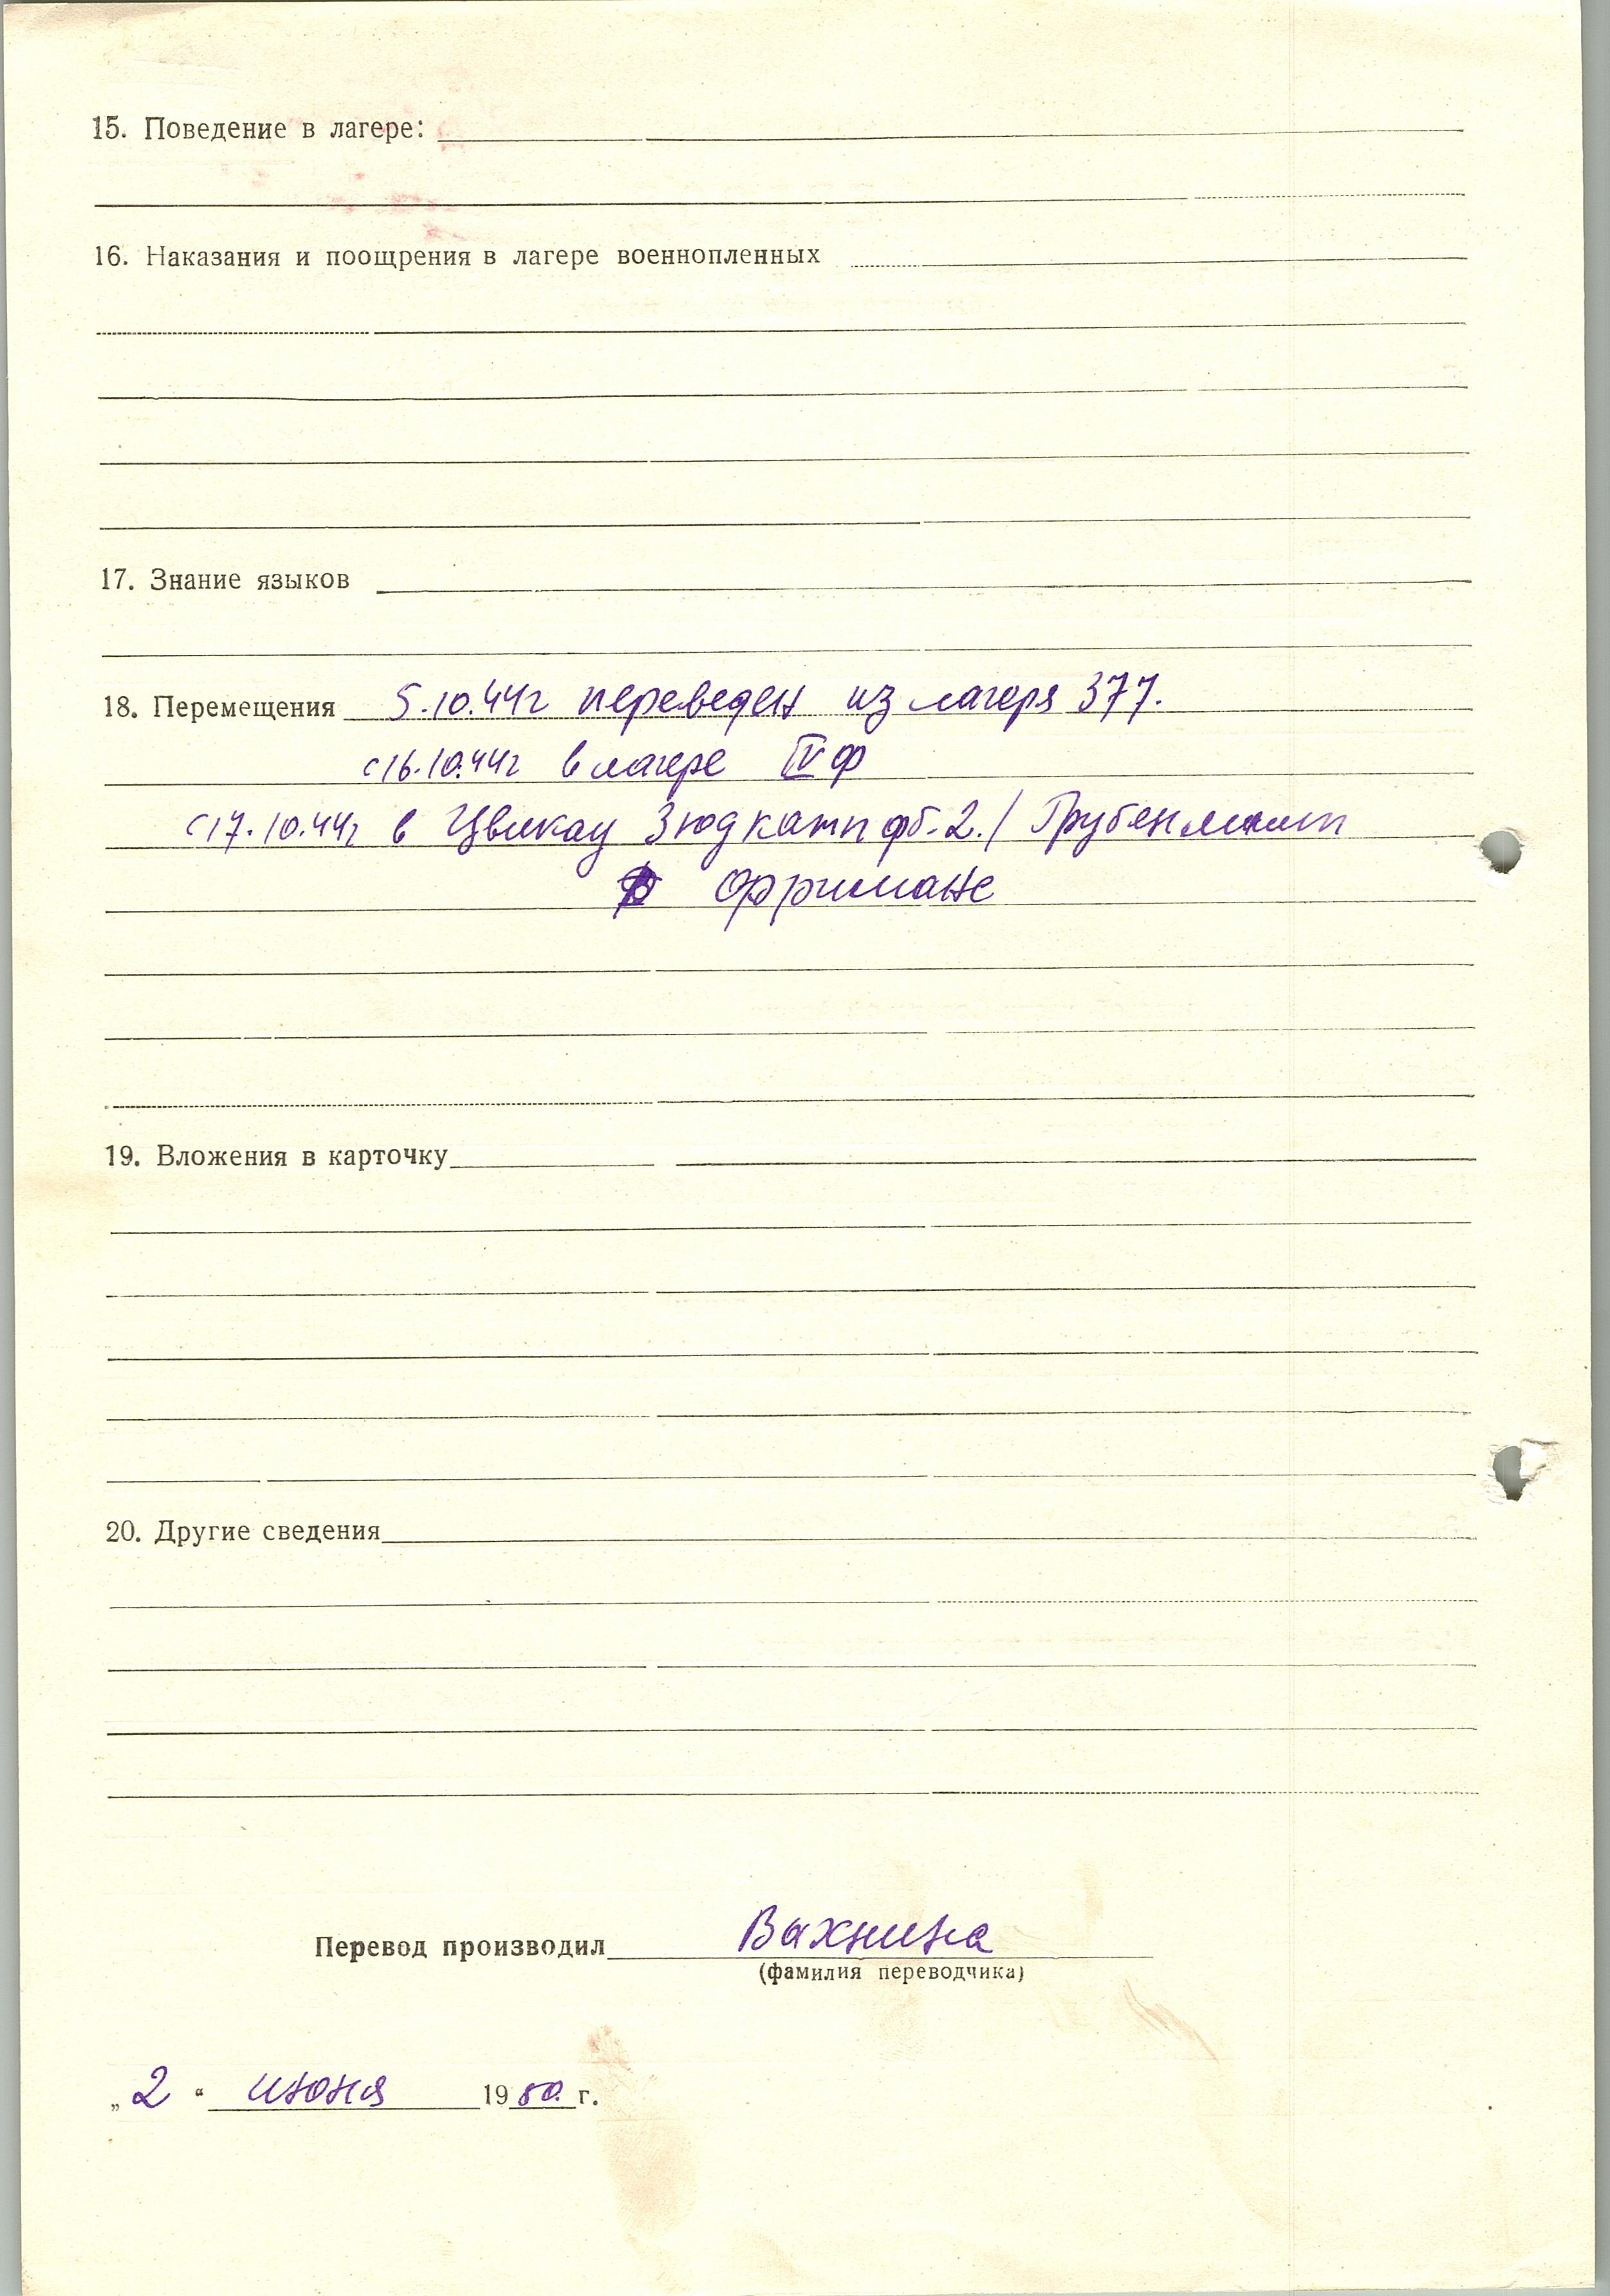 15. Поведение в лагере:
16. Наказания и поощрения в лагере военнопленных
17. Знание языков
18. Перемещения 5.10.44г переведен из лагеря 377.
с 16.10.44г в лагере IV ф
с 17.10.44г в Цвикау Зюдкамп фб-2. / Грубен
19. Вложения в карточку
20. Другие сведения
Перевод производил Вахнина
(фамилия переводчика)
„ 2 “ июня 1950. г.